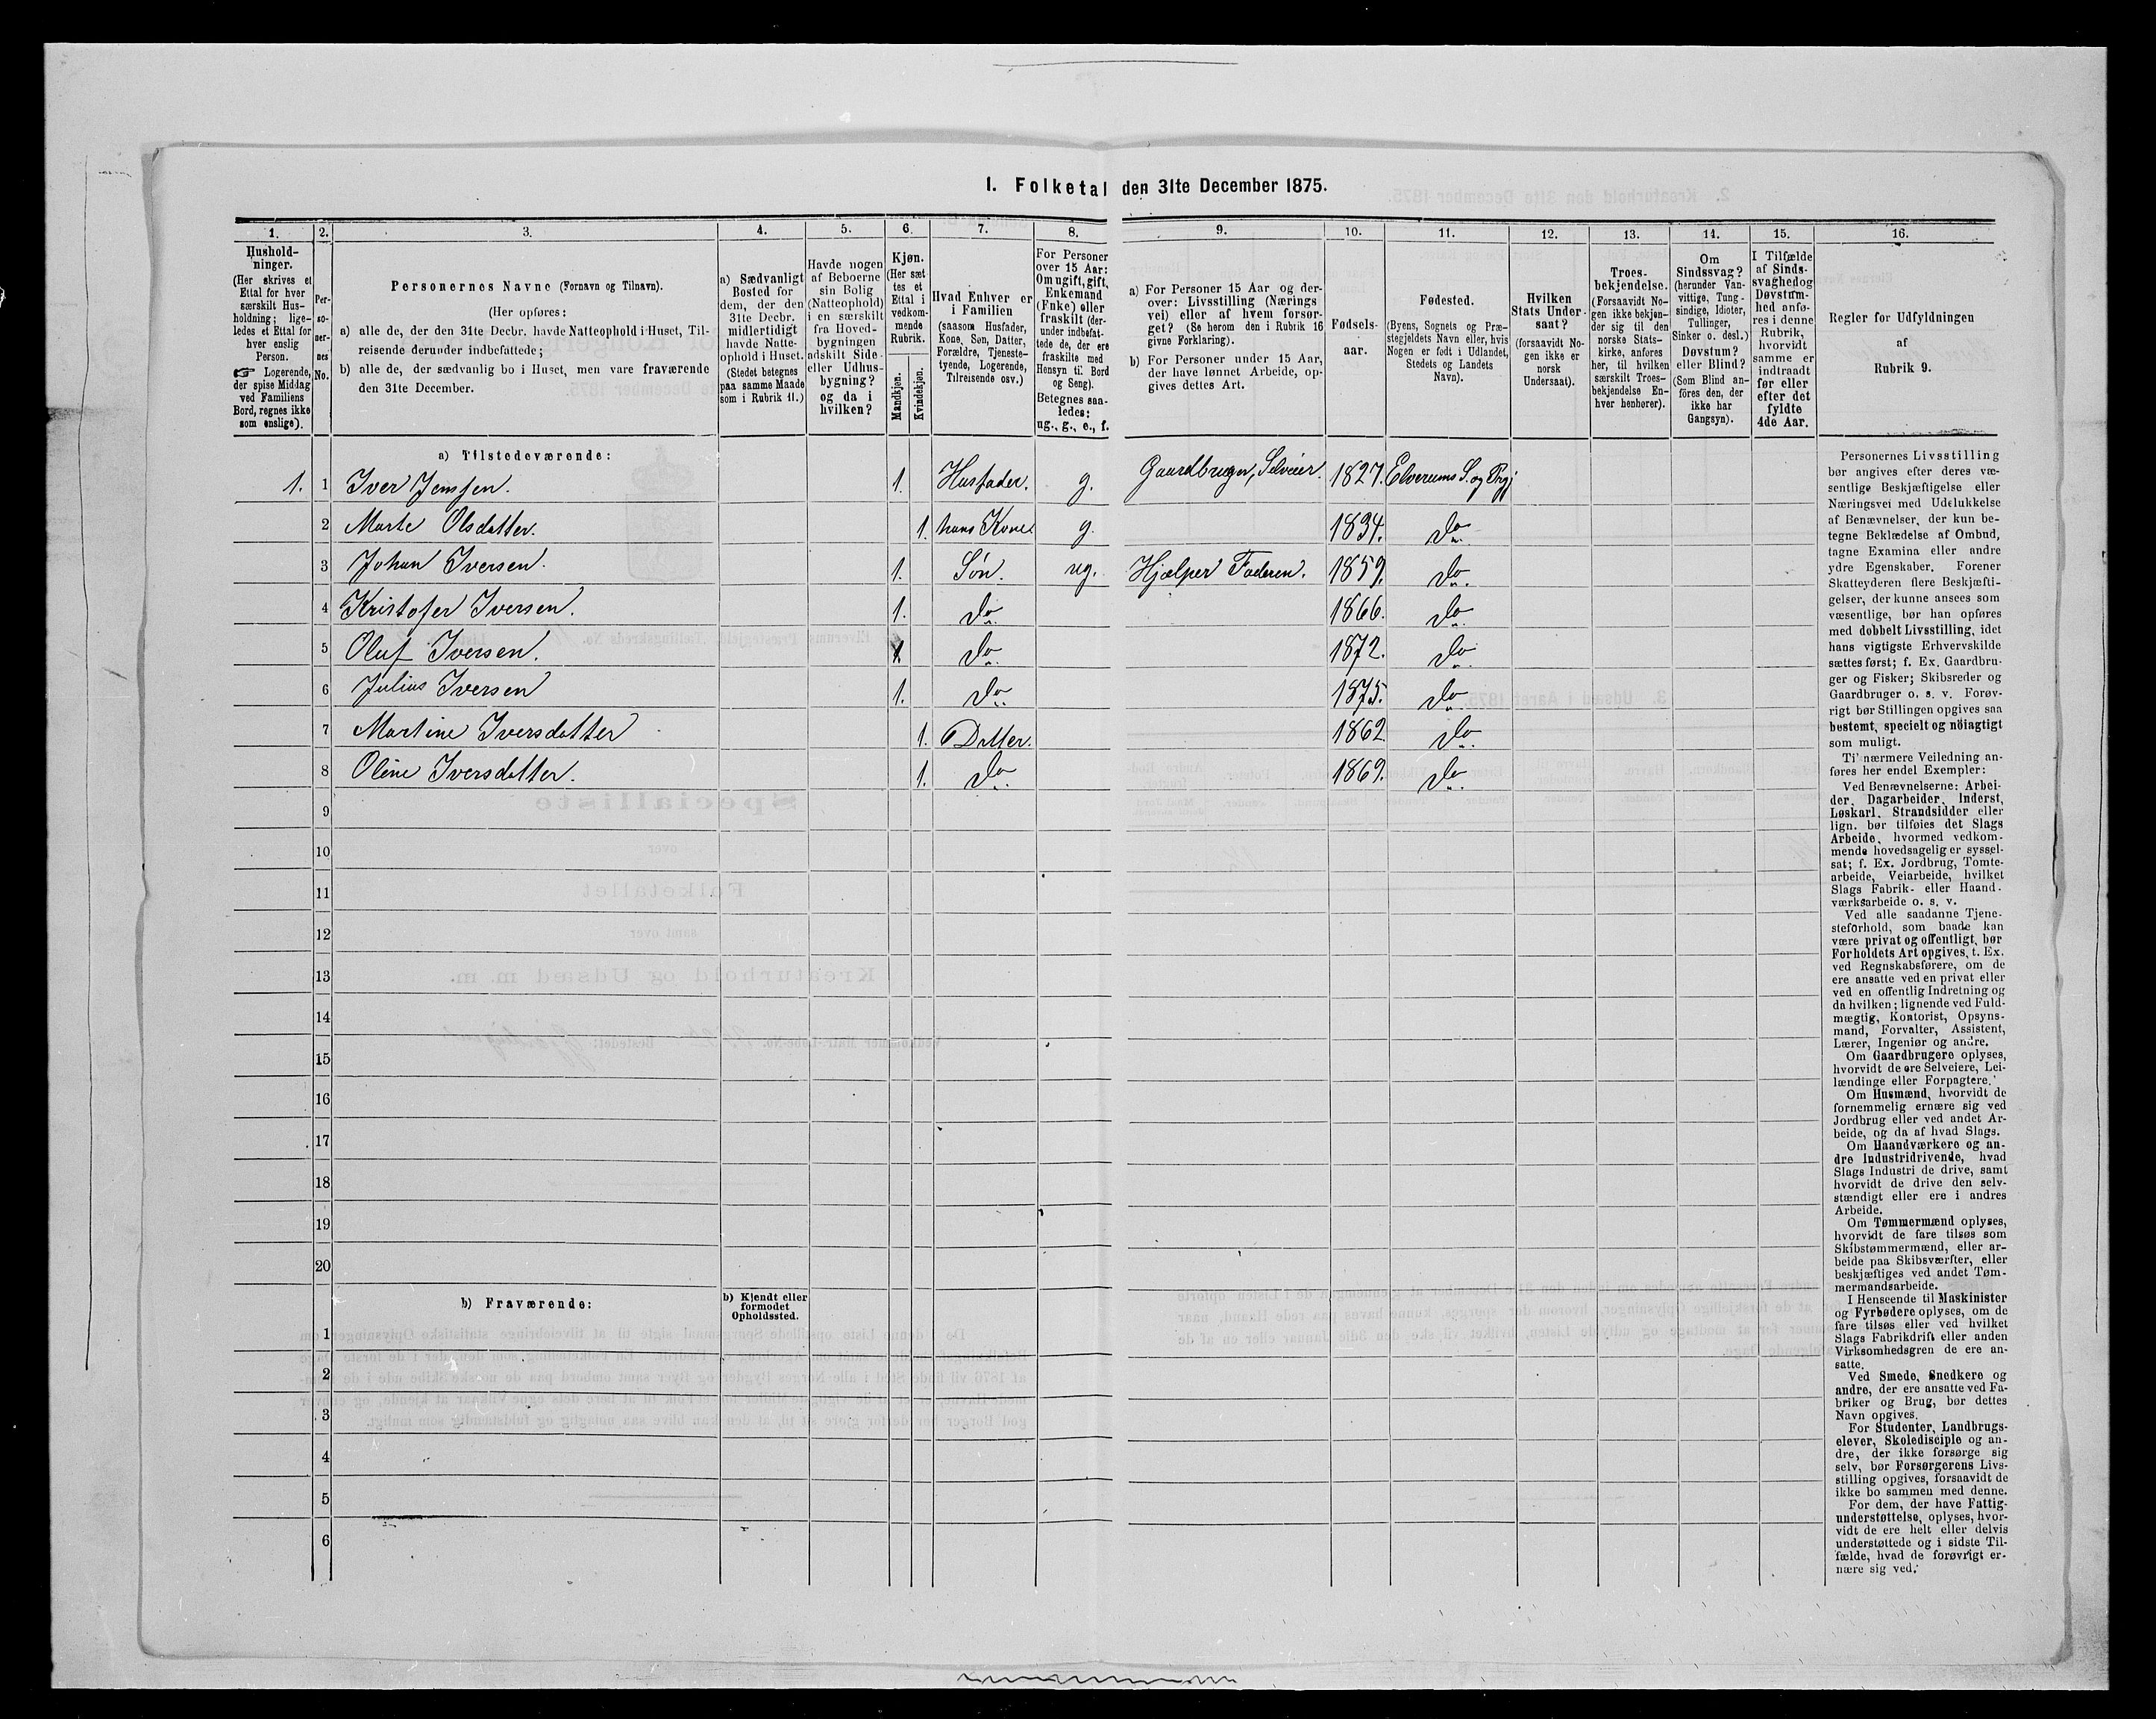 1. Folketal den 31te December 1875.
1. 2. 3. 4. 5. 6. 7. 8. 9. 10. 11. 12. 13. 14. 15. 16.
Hushold-
ninger.
(Her skrives et
Ettal for hver
særskilt Hus-
holdning; lige-
ledes et Ettal for
hver enslig
Person.
☞ Logerende,
der spise Middag
ved Familiens
Bord, regnes ikke
som enslige).
Per-
so-
ner-
nes
No.
Personernes Navne (Fornavn og Tilnavn).
(Her opføres:
a) alle de, der den 31te Decbr. havde Natteophold i Huset, Til-
reisende derunder indbefattede;
b) alle de, der sædvanlig bo i Huset, men vare fraværende
den 31te December.
a) Sædvanligt
Bosted for
dem, der den
31te Decbr.
midlertidigt
havde Natte-
ophold i Huset.
(Stedet betegnes
paa samme Maade
som i Rubrik 11.)
Havde nogen
af Beboerne
sin Bolig
(Natteophold)
i en særskilt
fra Hoved-
bygningen
adskilt Side-
eller Udhus-
bygning?
og da i
hvilken?
Kjøn.
(Her sæt
tes et
Ettal i
vedkom-
mende
Rubrik.
Mandkjøn.
Kvindekjøn.
Hvad Enhver er
i Familien
(saasom Husfader,
Kone, Søn, Datter,
Forældre, Tjeneste-
tyende, Logerende,
Tilreisende osv.)
For Personer
over 15 Aar:
Om ugift, gift,
Enkemand
(Enke) eller
fraskilt (der-
under indbefat-
tede de, der ere
fraskilte med
Hensyn til Bord
og Seng).
Betegnes saa-
ledes:
ug., g., e., f.
a) For Personer 15 Aar og der-
over: Livsstilling (Nærings
vei) eller af hvem forsør-
get? (Se herom den i Rubrik 16
givne Forklaring).
b) For Personer under 15 Aar,
der have lønnet Arbeide, op-
gives dettes Art.
Fødsels-
aar.
Fødested.
(Byens, Sognets og Præ-
stegjeldets Navn eller, hvis
Nogen er født i Udlandet,
Stedets og Landets
Navn).
Hvilken
Stats Under-
saat?
(forsaavidt No-
gen ikke er
norsk
Undersaat).
Troes-
bekjendelse.
(Forsaavidt No-
gen ikke bekjen-
der sig til den
norske Stats-
kirke, anføres
her, til hvilken
særskilt Troes-
bekjendelse En-
hver henhører).
Om
Sindssvag?
(herunder Van-
vittige, Tung-
sindige, Idioter,
Tullinger,
Sinker o. desl.)
Døvstum?
eller Blind?
(Som Blind an-
föres den, der
ikke har
Gangsyn).
I Tilfælde
af Sinds-
svaghed og
Døvstum-
hed anfø-
res i denne
Rubrik,
hvorvidt
samme er
indtraadt
før eller
efter det
fyldte
4de Aar.
Regler for Udfyldningen
af
Rubrik 9.
a) Tilstedeværende:
1. 1 Iver Jensen. 1. Husfader. g. Gaardbruger, Selveier. 1827. Elverums S. og Prgj
2 Marte Olsdatter. 1. hans Kone. g. 1834. do
3 Johan Iversen. 1. Søn. ug. Hjælper Faderen. 1859. do
4 Kristofer Iversen. 1. do 1866. do
5 Oluf Iversen. 1. do 1872. do
6 Julius Iversen 1. do 1875. do
7 Martine Iversdatter 1. Datter. 1862 do
8 Oline Iversdatter. 1. do 1869. do
9
10
11
12
13
14
15
16
17
18
19
20
b) Fraværende:
b) Kjendt eller
formodet
Opholdssted.
1
2
3
4
5
6
Personernes Livsstilling
bør angives efter deres væ-
sentlige Beskjæftigelse eller
Næringsvei med Udelukkelse
af Benævnelser, der kun be-
tegne Beklædelse af Ombud,
tagne Examina eller andre
ydre Egenskaber. Forener
Skatteyderen flere Beskjæfti-
gelser, der kunne ansees som
væsentlige, bør han opføres
med dobbelt Livsstilling, idet
hans vigtigste Erhvervskilde
sættes først; f. Ex. Gaardbru-
ger og Fisker; Skibsreder og
Gaardbruger o. s. v. Forøv-
rigt bør Stillingen opgives saa
bestemt, specielt og nöiagtigt
som muligt.
Til nærmere Veiledning an-
føres her endel Exempler:
Ved Benævnelserne: Arbei-
der, Dagarbeider, Inderst,
Løskarl, Strandsidder eller
lign. bør tilføies det Slags
Arbeide, hvormed vedkom-
mende hovedsagelig er syssel-
sat; f. Ex. Jordbrug, Tomte-
arbeide, Veiarbeide, hvilket
Slags Fabrik- eller Haand-
værksarbeide o. s. v.
Ved alle saadanne Tjene-
steforhold, som baade kan
være privat og offentligt, bør
Forholdets Art opgives, t. Ex.
ved Regnskabsførere, om de
ere ansatte ved en privat eller
ved en offentlig Indretning og
da hvilken; lignende ved Fuld-
mægtig, Kontorist, Opsyns-
mand, Forvalter, Assistent,
Lærer, Ingeniør og andre.
Om Gaardbrugere oplyses,
hvorvidt de ere Selveiere, Lei-
lændinge eller Forpagtere.
Om Husmænd, hvorvidt de
fornemmelig ernære sig ved
Jordbrug eller ved andet Ar-
beide, og da af hvad Slags.
Om Haandværkere og an-
dre Industridrivende, hvad
Slags Industri de drive, samt
hvorvidt de drive den selv-
stændigt eller ere i andres
Arbeide.
Om Tømmermænd oplyses,
hvorvidt de fare tilsøs som
Skibstømmermænd, eller ar-
beide paa Skibsværfter, eller
beskjæftiges ved andet Tøm-
mermandsarbeide.
I Henseende til Maskinister
og Fyrbødere oplyses, om de
fare tilsøs eller ved hvilket
Slags Fabrikdrift eller anden
Virksomhedsgren de ere an-
satte.
Ved Smede, Snedkere og
andre, der ere ansatte ved Fa-
briker og Brug, bør dettes
Navn opgives.
For Studenter, Landbrugs-
elever, Skoledisciple og an-
dre, der ikke forsørge sig
selv, bør Forsørgerens Livs-
stilling opgives, forsaavidt de
ikke bo sammen med denne.
For dem, der have Fattig-
understøttelse, oplyses, hvor-
vidt de ere helt eller delvis
understøttede og i sidste Til-
fælde, hvad de forøvrigt er-
nære sig ved.